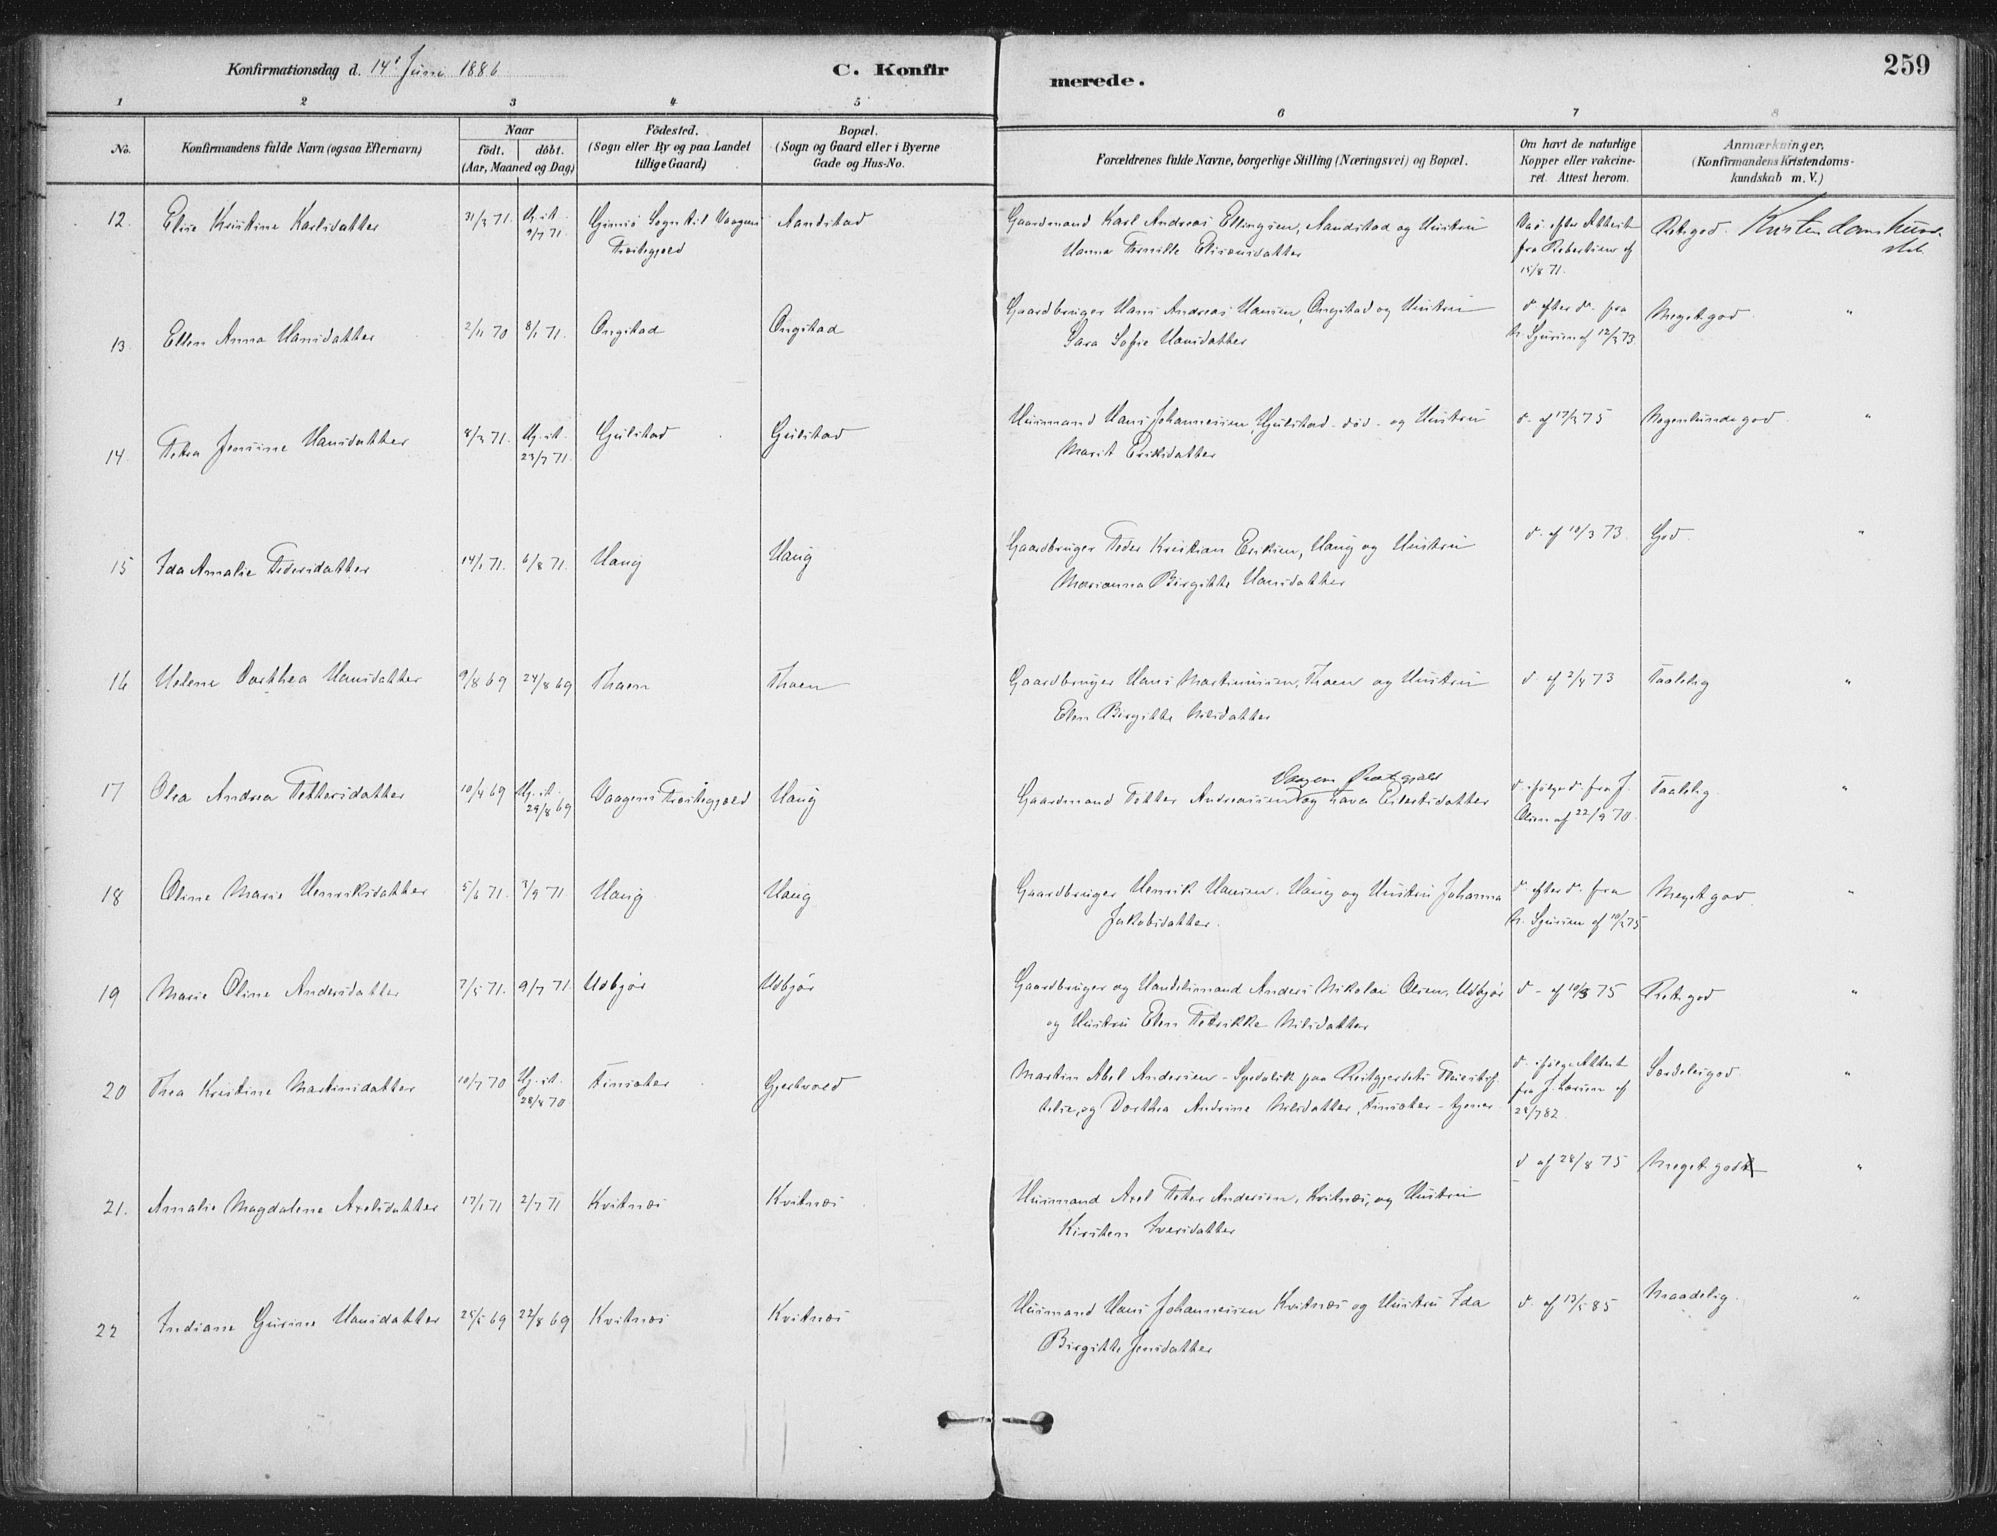 Konfirmationsdag d. 14' Juni 1886
C. Konfir
merede.
259
1 2 3 4 5 6 7 8
No.
Konfirmandens fulde Navn (ogsaa Efternavn)
Naar
födt. döbt.
(Aar, Maaned og Dag)
Födested.
(Sogn eller By og paa Landet
tillige Gaard)
Bopæl.
(Sogn og Gaard eller i Byerne
Gade og Hus-No.
Forældrenes fulde Navne, borgerlige Stilling (Næringsvei) og Bopæl.
Om havt de naturlige
Kopper eller vakcine-
ret. Attest herom.
Anmærkninger.
(Konfirmandens Kristendoms-
kundskab m. V.)
12. Elise Kristine Karlsdatter 31/3 71. Hj. st. 9/7 71 Gimsö Sogn til Vaagens Præstegjæld Sandstad
Gaardmand Karl Andreas Ellingsen, Sandstad og Hustru
Hanna Pernille Elisensdatter
Vac. efter Attest
fra Robertsen af
15/8 71.
Retgod. Kristendomskund-
skab.
13. Ellen Anna Hansdatter 2/11 70 8/1 71. Ongstad Ongstad
Gaardbruger Hans Andreas Hansen, Ongstad og Hustru
Sara Sofie Hansdatter
d. efter do. fra
N. Sjursen af 12/3 73.
Meget god. "
14. Petra Jensine Hansdatter 8/3 71. Hj. st. 23/7 71. Gulstad Gulstad
Husmand Hans Johannessen, Gulstad - död - og Hustru
Marit Eriksdatter
d. af 17/3 75 Nogenlunde god. "
15 Ida Amalie Pedersdatter 14/1 71. 6/8 71. Haug Haug
Gaardbruger Peder Kristian Eriksen, Haug og Hustru
Marianna Birgitte Hansdatter
d. af 10/3 73. God. "
16 Helene Dorthea Hansdatter 9/8 69 24/8 69 Thoen Thoen
Gaardbruger Hans Martinussen, Thoen og Hustru
Elen Birgitte Nilsdatter
d. af 2/4 73 Taalelig "
17 Olea Andrea Pettersdatter 10/4 69 Hj. st. 29/8 69 Vaagens Præstegjæld Haug
Vaagens Præstegjæld
Gaardmand Petter Andreassen og Lava Eilertsdatter
d. ifølge do. fra J.
Olsen af 22/9 70.
Taalelig. "
18 Oline Marie Henriksdatter 5/6 71. 3/9 71 Haug Haug
Gaardbruger Henrik Hansen, Haug og Hustru Johanna
Jakobsdatter.
d. efter do. fra
N. Sjursen af 10/3 75
Meget god. "
19 Marie Oline Andersdatter 7/5 71. 9/7 71. Udbjør Udbjør
Gaardbruger og Handelsmand Anders Nikolai Olsen, Udbjør
og Hustru Elen Petrikke Nilsdatter
d. - af 10/3 75 Retgod "
20 Thea Kristine Martinsdatter 10/7 70 Hj. st. 28/8 70 Finsæter Gjerstvold
Martin Abel Andersen - Spedalsk paa Reitgjerdets Pleiestif-
telse, og Dorthea Andrine Nilsdatter, Finsæter - tjener
d. ifølge Attest
fra J. Larsen af
28/7 82.
Særdeles god. "
21. Amalie Magdalene Axelsdatter 17/1 71 2/7 71 Kvitnæs Kvitnæs
Husmand Axel Peter Andersen, Kvitnæs, og Hustru
Kirsten Iversdatter
d. af 28/8 75 Meget god "
22 Indiane Gurine Hansdatter 25/5 69 22/8 69 Kvitnæs Kvitnæs
Husmand Hans Johannessen Kvitnæs og Hustru Ida
Birgitte Jensdatter
d. af 13/5 85 Maadelig. "